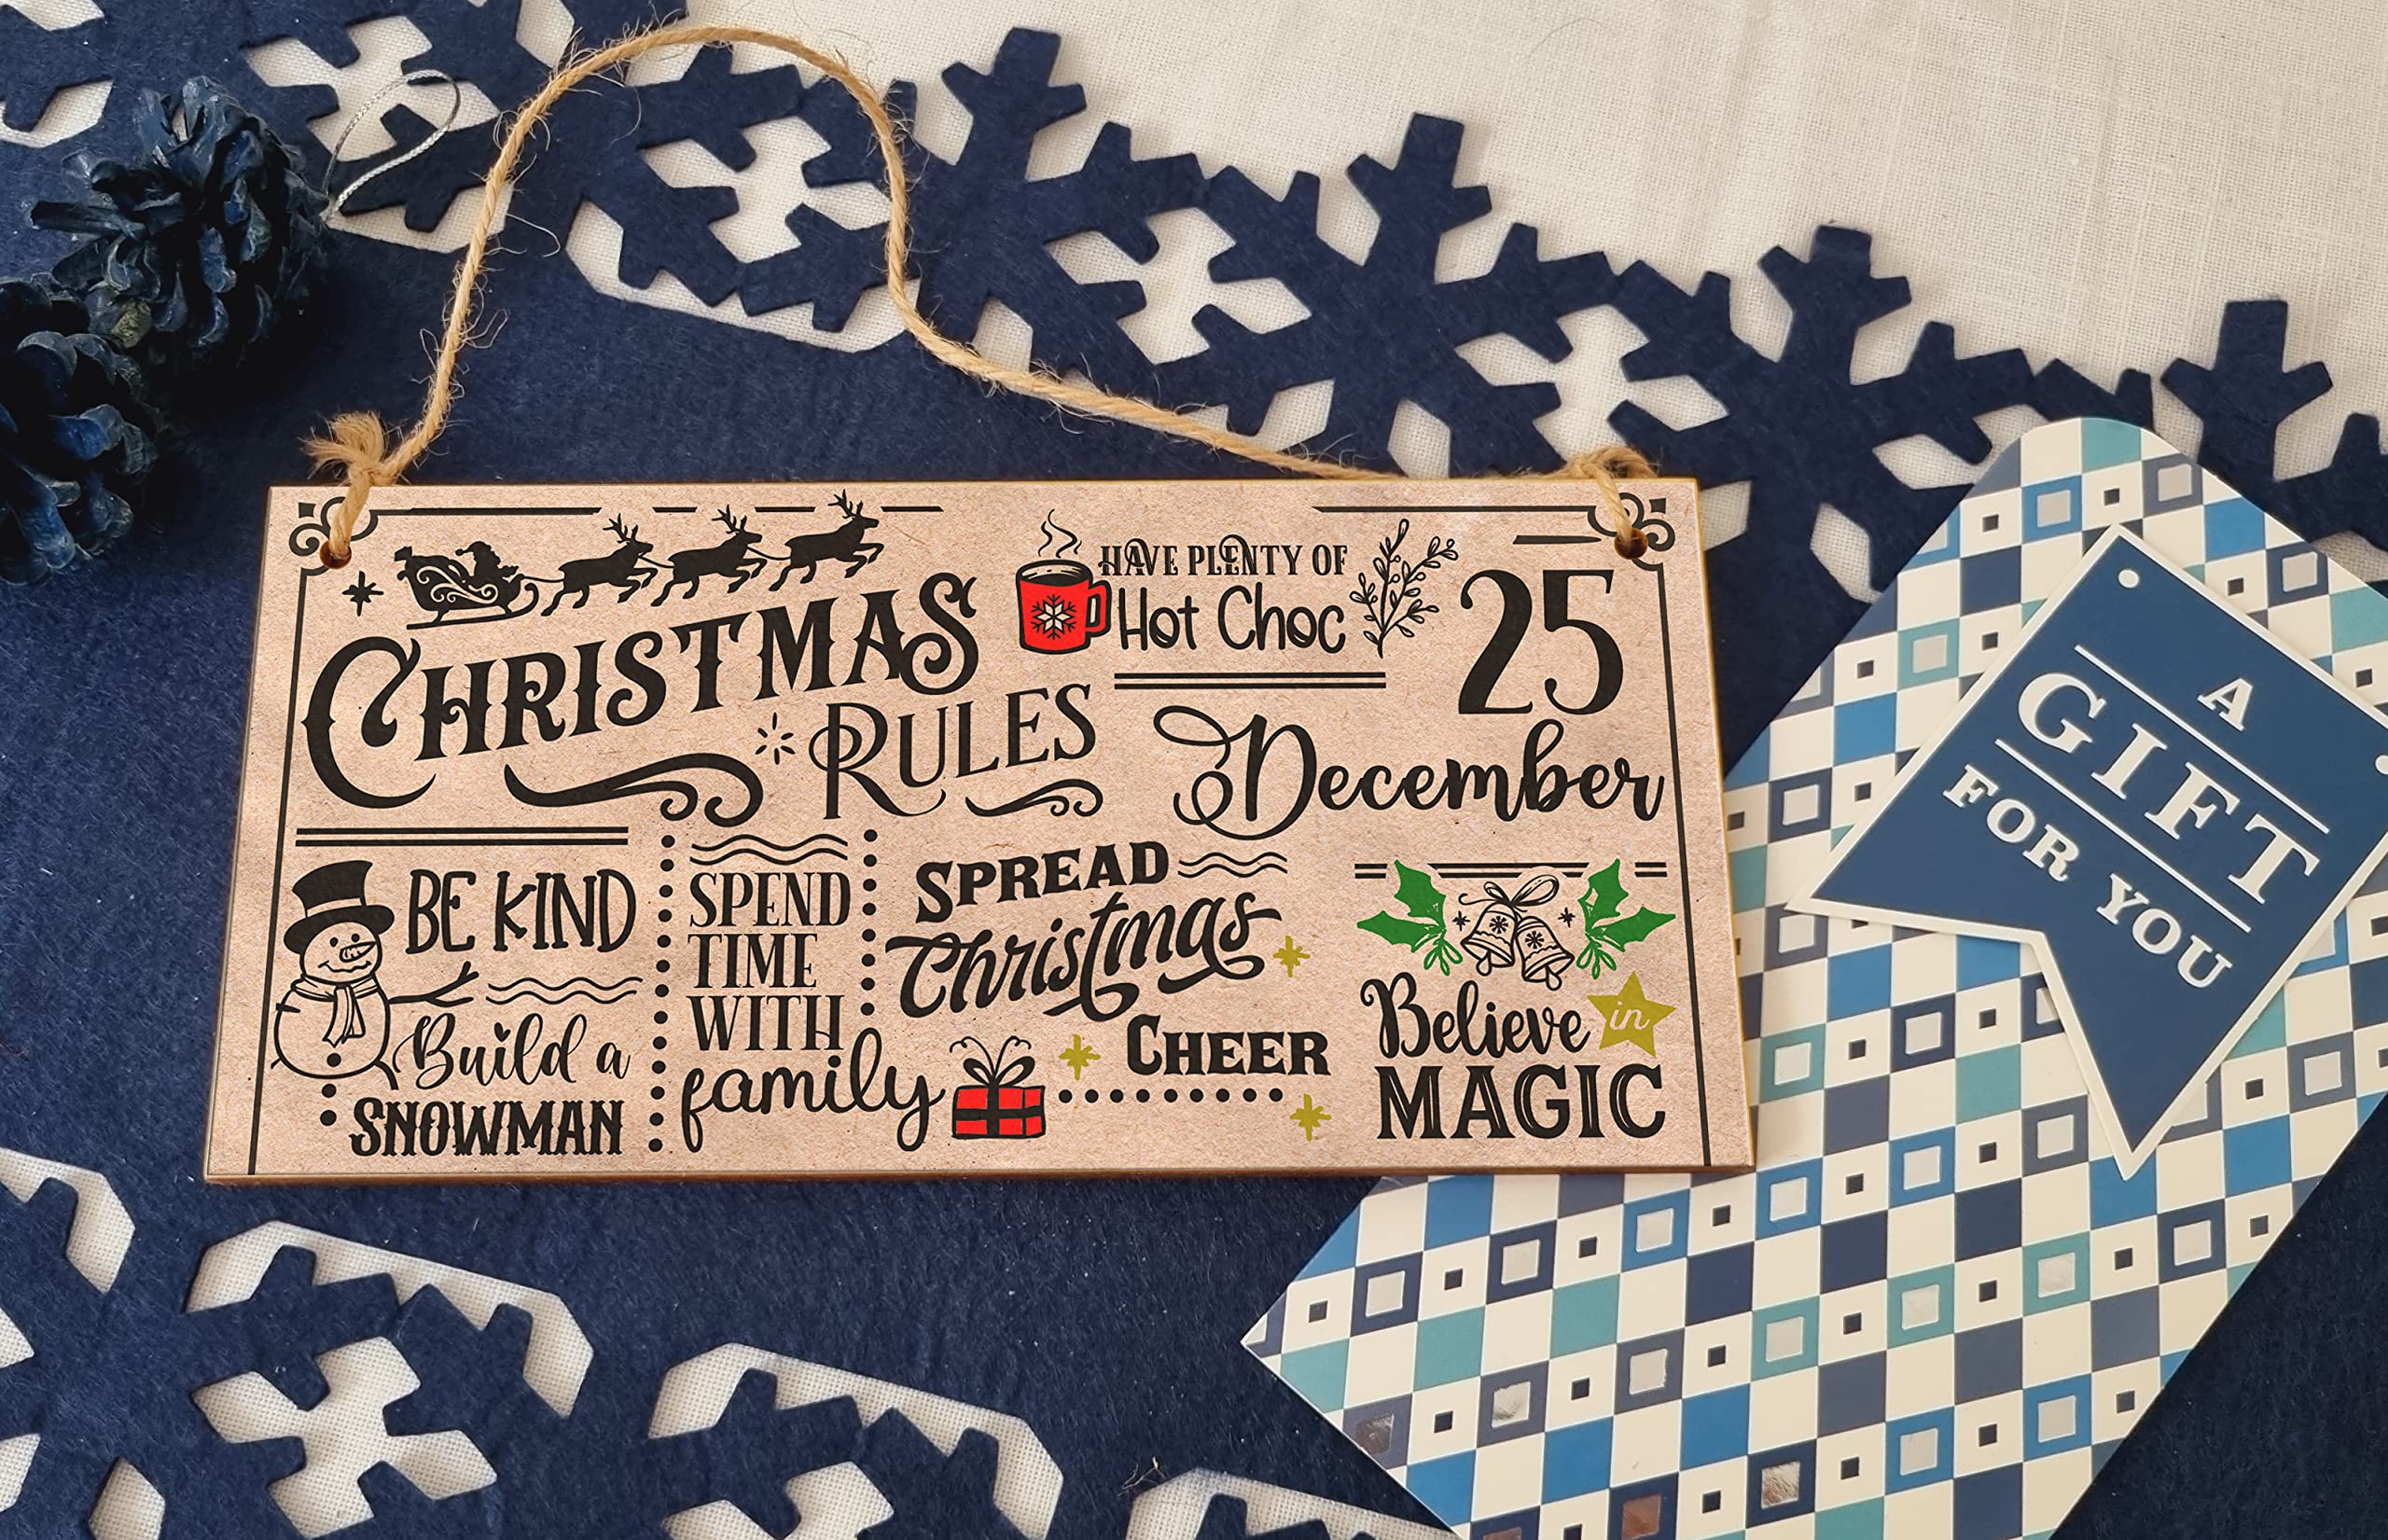 CHRISTMAS
RULES
HAVE PLENTY OF
Hot Choc
25
December
BE KIND
Build a
SNOWMAN
SPEND
TIME
WITH
family
SPREAD
Christmas
CHEER
Believe in
MAGIC
A
GIFT
FOR YOU